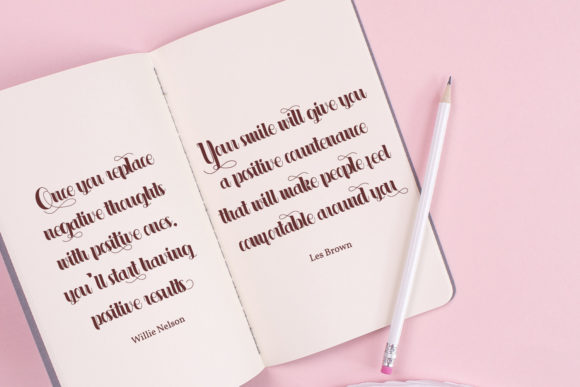 Once you replace
negative thoughts
with positive ones,
you'll start having
positive results
Willie Nelson
Your smile will give you
a positive countenance
that will make people feel
comfortable around you
Les Brown